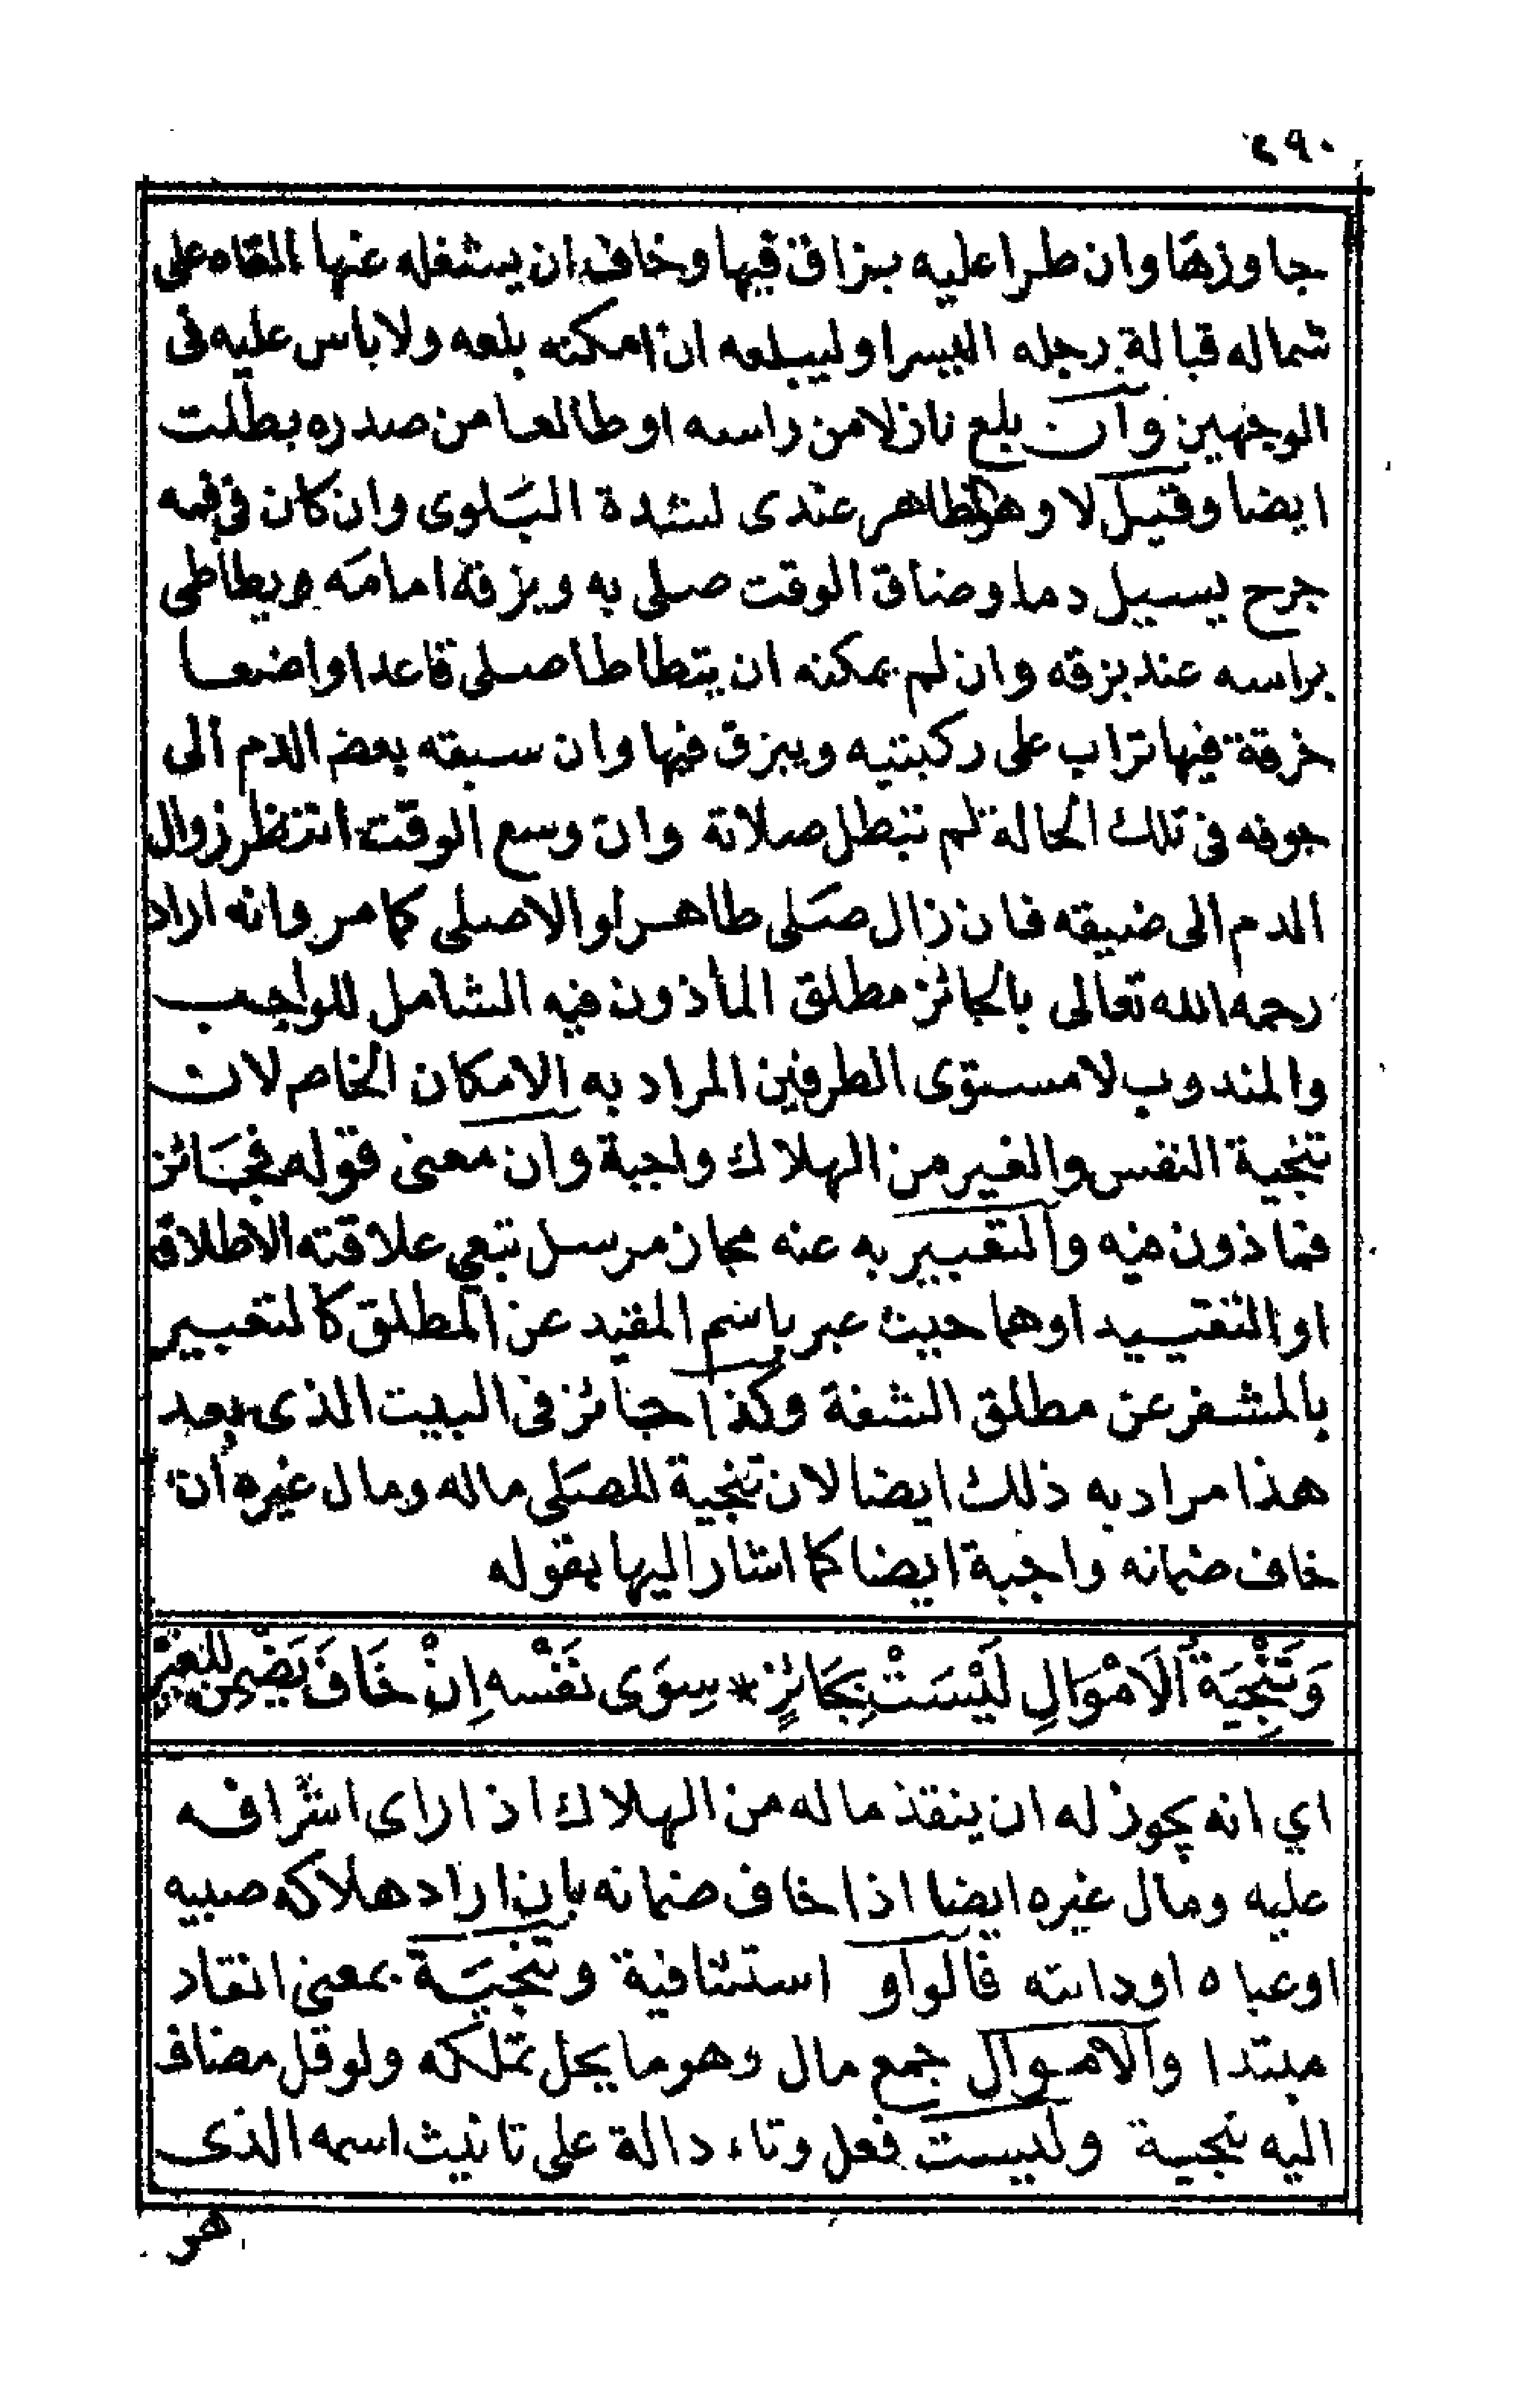 ٢٩٠
جاوزها وان طرا عليه بزاق فيها وخاف ان يشغله عنها القاه على
شماله قبالة رجله اليسرا وليبلعه ان امكنه بلعه ولا باس عليه فى
الوجهين وان بلع نازلا من راسه او طالعا من صدره بطلت
ايضا وقيل لا وهو الظاهر عندى لشدة البَلوى وان كان فى فمه
جرح يسيل دما وضاق الوقت صلى به ويزقه امامَه ويطاطى
براسه عند بزقه وان لم يمكنه ان يتطاطا صلى قاعدا واضعا
خرقة فيها تراب على ركبتيه ويبزق فيها وان سبقه بعض الدم الى
جوفه فى تلك الحالة لم تبطل صلاته وان وسع الوقت انتظر زوال
الدم الى ضيقه فان زال صَلى طاهرا والا صلى كما مر وانه اراد
رحمه الله تعالى بالجائز مطلق المأذون فيه الشامل للواجب
والمندوب لا مستوى الطرفين المراد به الامكان الخاص لان
تنجية النفس والغير من الهلاك واجبة وان معنى قوله فجَائز
فماذون فيه والتعبير به عنه مجاز مرسل تبعي علاقته الاطلاق
او التقييد او هما حيث عبر باسم المقيد عن المطلق كالتعبير
بالمشفر عن مطلق الشفة وكذا جائز فى البيت الذى بعد
هذا مراد به ذلك ايضا لان تنجية المصَلى ماله ومال غيره ان
خاف ضمانه واجبة ايضا كما اشار اليها بقوله
وَتَنْجِيَةُ الَامْوَالِ لَيْسَتْ بِجَائِزٍ * سِوَى نَفْسه اِنْ خَافَ يَضْمن للغير
اي انه يجوز له ان ينقذ ماله من الهلاك اذا راى اشرافه
عليه ومال غيره ايضا اذا خاف ضمانه بان اراد هلاكه صبيه
او عباه او دابته فالواو استئنافية وتنجيَة بمعنى انقاد
مبتدا والاموال جمع مال وهو ما يحل تملكه ولو قل مضاف
اليه تنجية وليست فعل وتاء دالة على تانيث اسمه الذى
هو